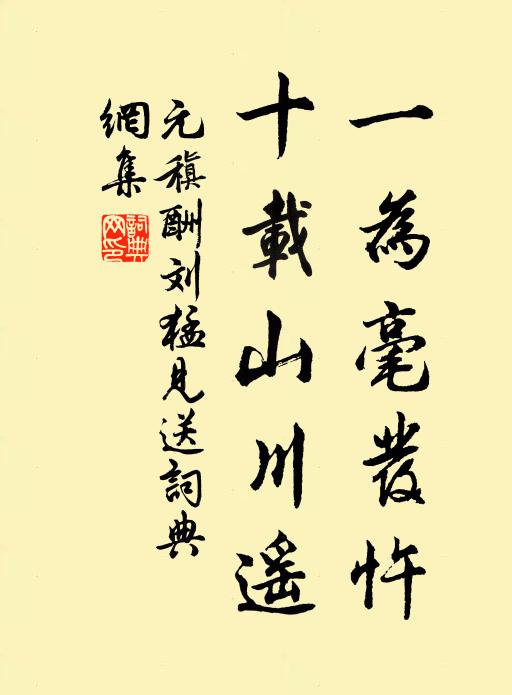 一為毫發忤
十載山川遥
元稹酬刘猛見送詞典
網集
詞典網印